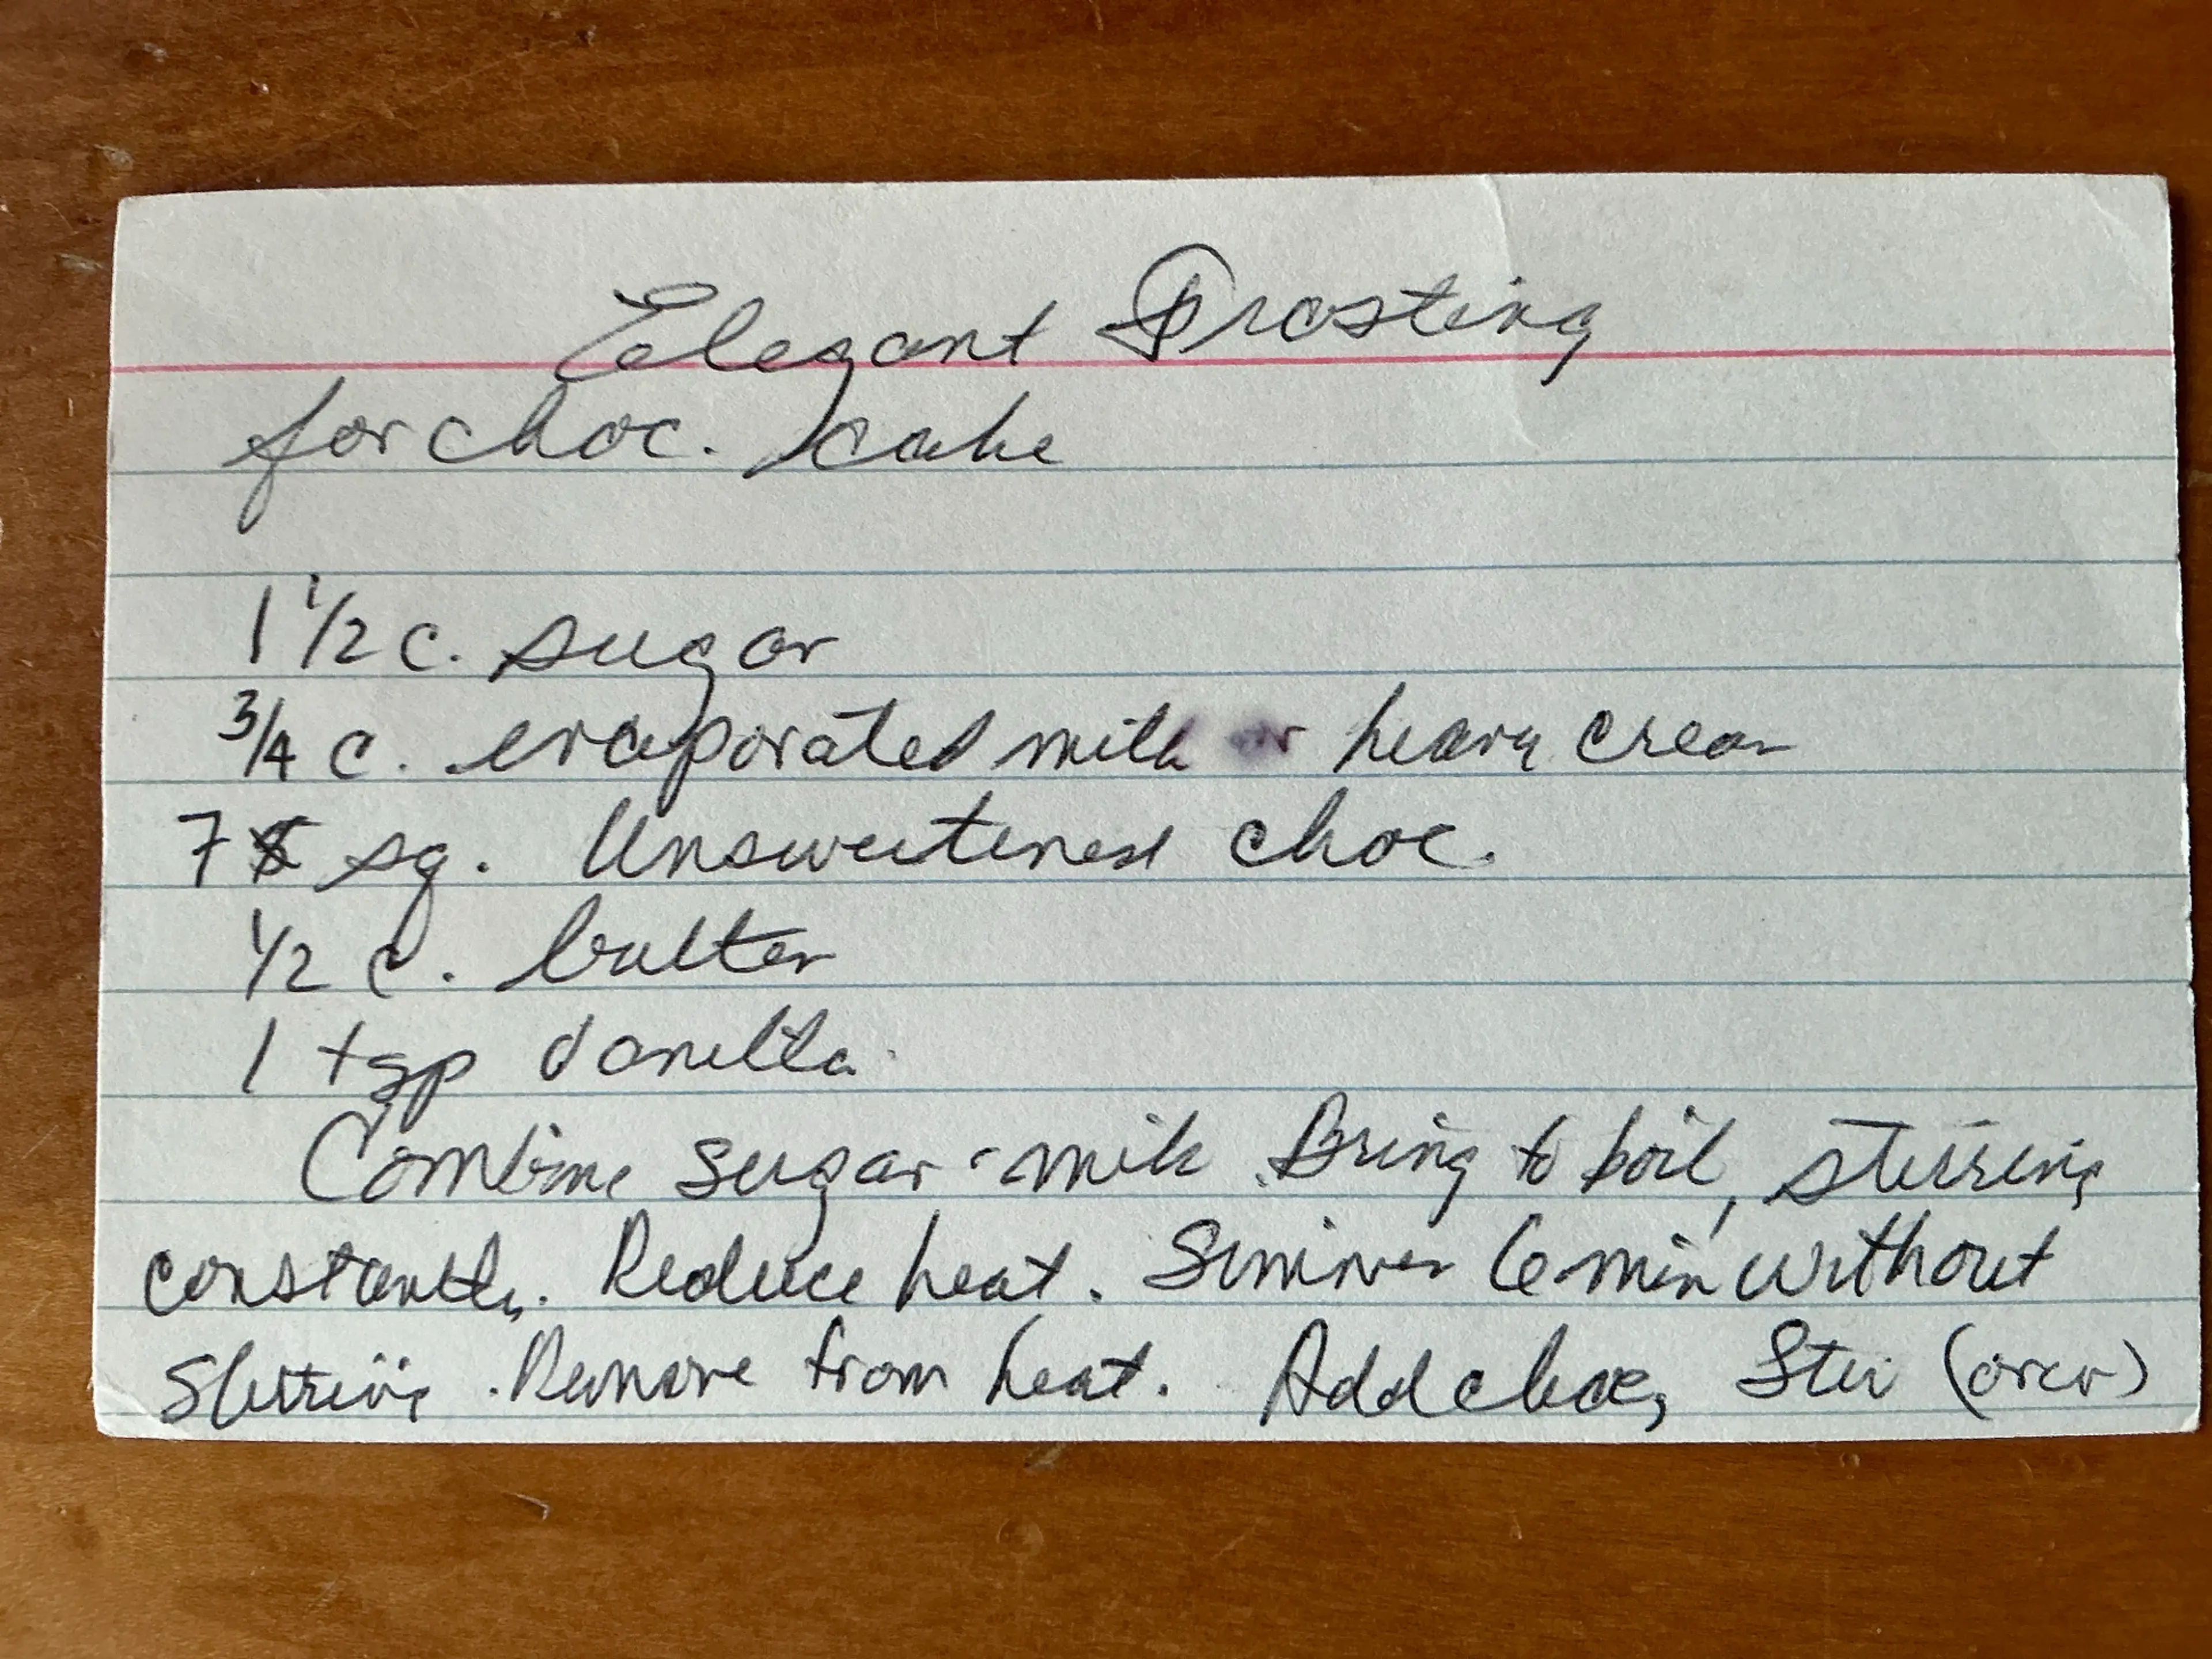 Elegant Frosting
for choc. cake
1 1/2 c. sugar
3/4 c. evaporated milk or heavy cream
7 sq. Unsweetened choc.
1/2 c. butter
1 tsp vanilla
Combine sugar milk. Bring to boil, stirring
constantly. Reduce heat. Simmer 6 min without
stirring. Remove from heat. Add choc, Stir (over)